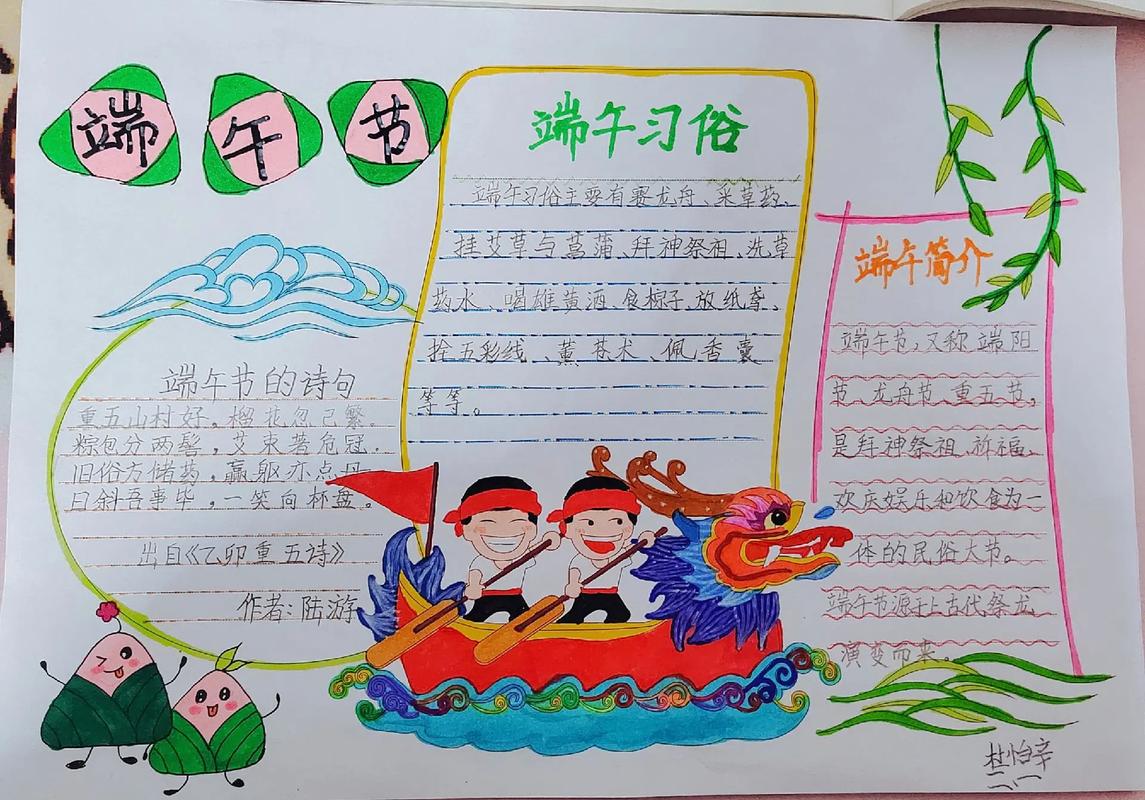 端午节
端午习俗
端午习俗主要有赛龙舟、采草药、
挂艾草与菖蒲、拜神祭祖、洗草
药水、喝雄黄酒、食粽子、放纸鸢、
拴五彩线、薰苍术、佩香囊
等等。
端午简介
端午节，又称端阳
节、龙舟节、重五节，
是拜神祭祖、祈福、
欢庆娱乐和饮食为一
体的民俗大节。
端午节源于上古代祭龙
演变而来。
端午节的诗句
重五山村好，榴花忽已繁。
粽包分两髻，艾束著危冠。
旧俗方储药，羸躯亦点丹
日斜吾事毕，一笑向杯盘。
出自《乙卯重五诗》
作者：陆游
杜怡辛